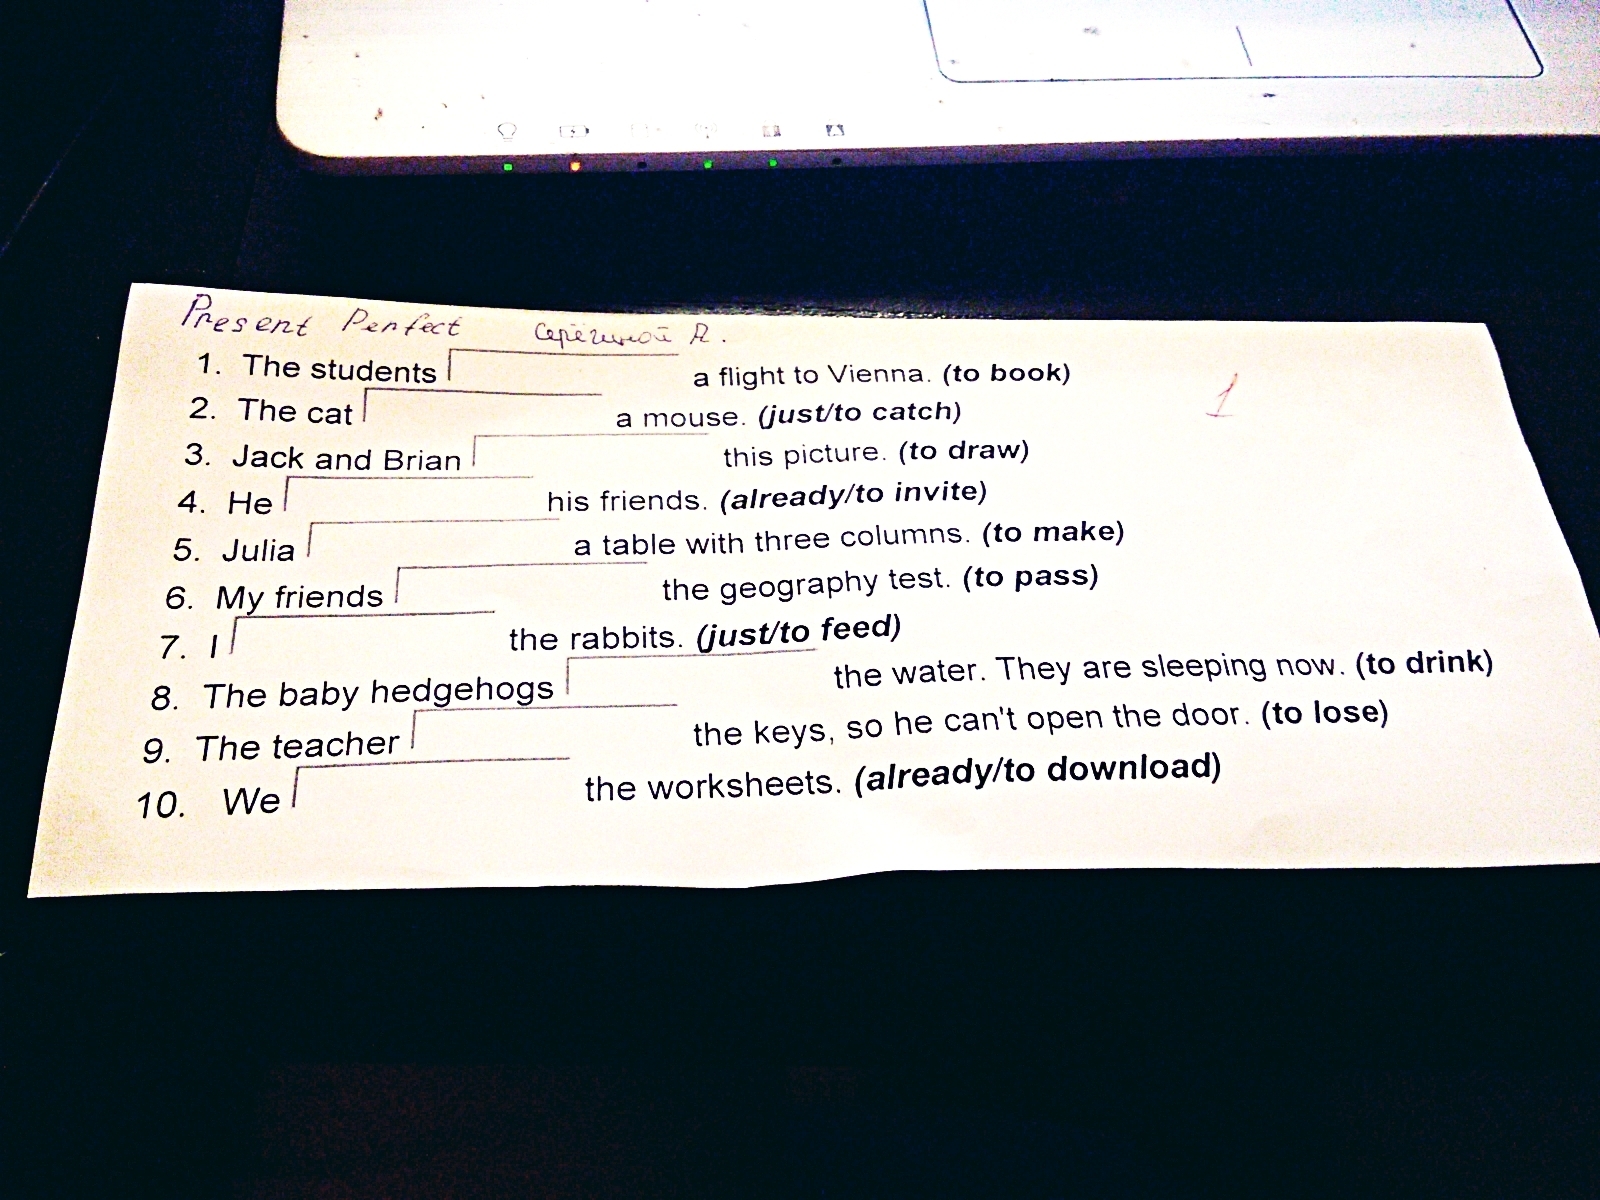 Present Perfect
1. The students a flight to Vienna. (to book)
2. The cat a mouse. (just/to catch)
3. Jack and Brian this picture. (to draw)
4. He his friends. (already/to invite)
5. Julia a table with three columns. (to make)
6. My friends the geography test. (to pass)
7. I the rabbits. (just/to feed)
8. The baby hedgehogs the water. They are sleeping now. (to drink)
9. The teacher the keys, so he can't open the door. (to lose)
10. We the worksheets. (already/to download)
1